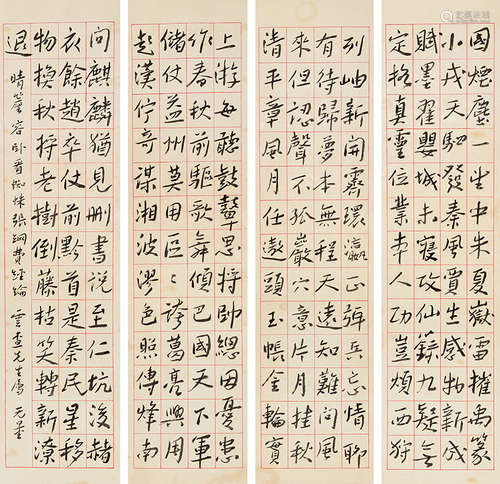 國煙塵一生中夏嶽摧禹篆
小戎天駟發秦風賈生感物新成
賦墨翟嬰城未寢攻仙籙九疑
定格真靈位業本人功豈煩西狩
列岫新開霽環瀛正弭兵忘情聊
有待歸夢本無程天遠知難問風
來但認聲不孤巖穴意片月挂秋
清平章風月任遨頭玉帳金輪實
上游每聽鼓鼙思將帥總因憂患
作春秋前驅歌舞傾巴國天下軍
儲仗益州莫用區〻誇葛亮興用
起漢佇奇謀湘波漻色照傳烽南
向麒麟猶見刪書說至仁坑後赭
衣餘趙卒仗前黔首是秦民星移
物換秋將老樹倒藤枯笑轉新潦
退
晴窗容臥看蜘蛛張網費經綸 雲查先生屬 无量